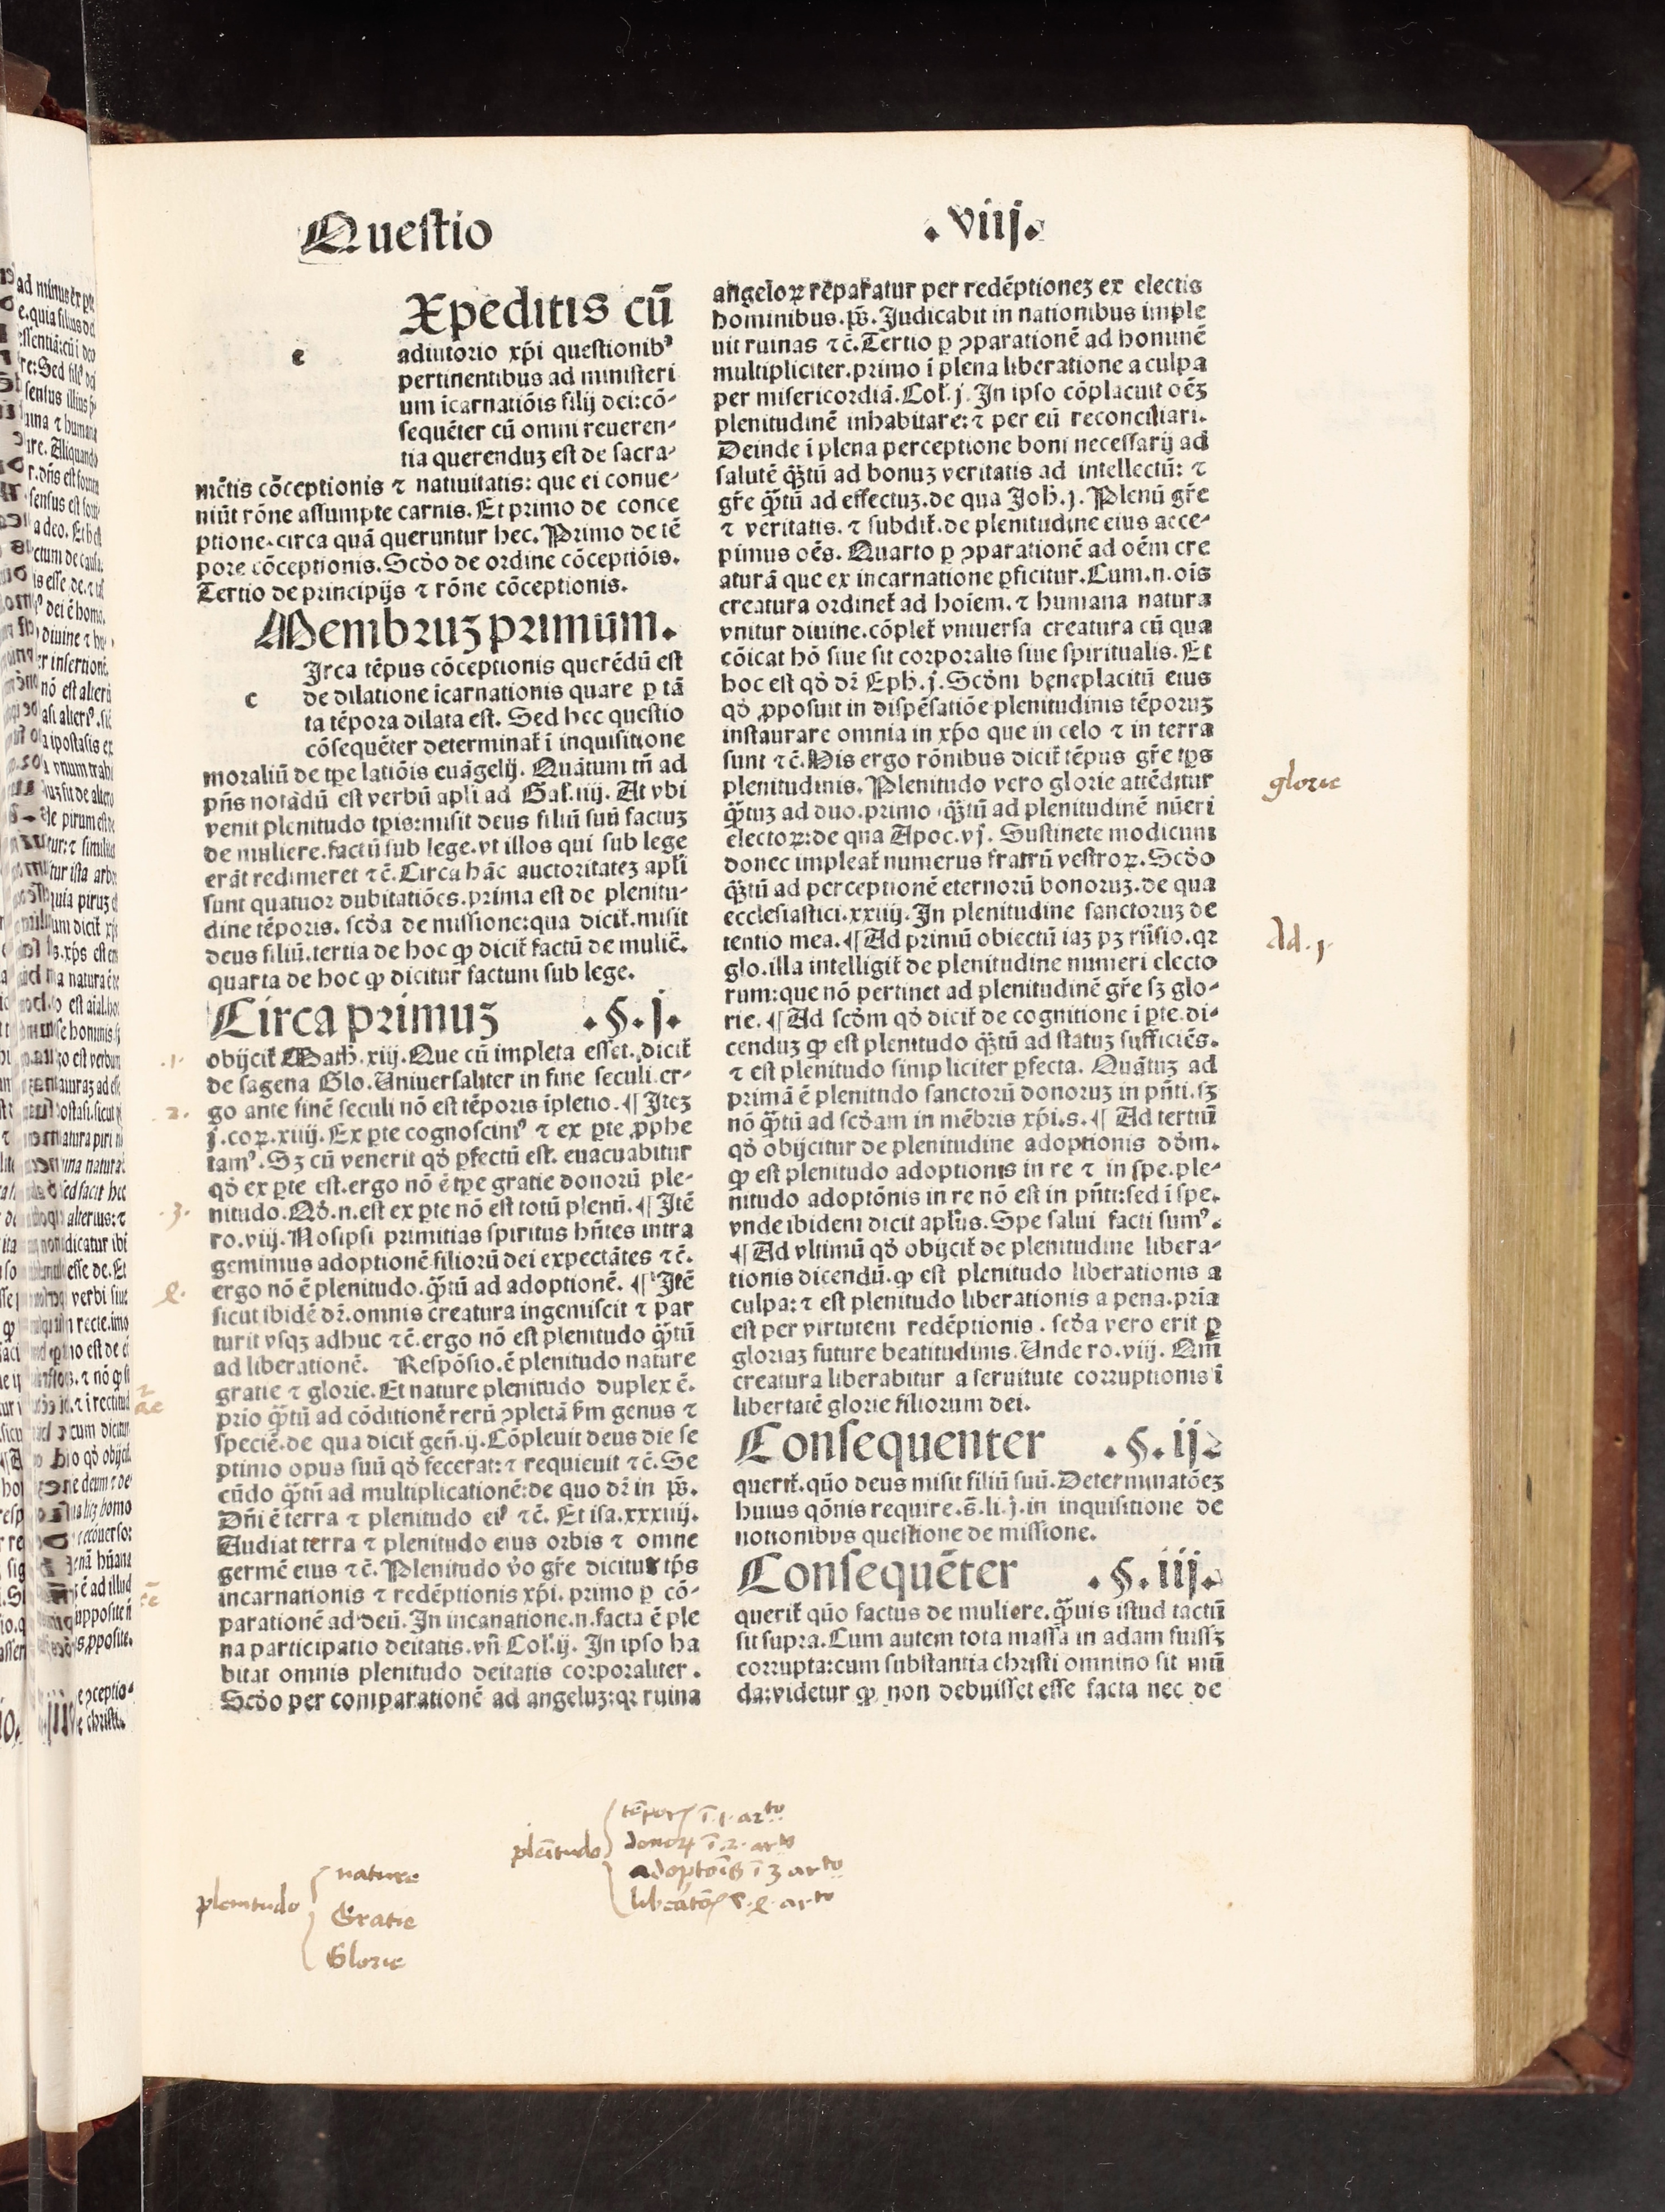 Questio .viij.
Xpeditis cū
e adiutorio xp̄i questionibꝰ
pertinentibus ad ministeri
um īcarnatiōis filij dei:cō-
sequēter cū omni reueren-
tia querenduꝫ est de sacra-
mētis cōceptionis ⁊ natiuitatis: que ei conue-
niūt rōne assumpte carnis. Et primo de conce
ptione.circa quā queruntur hec. Primo de tē
pore cōceptionis. Scd̓o de ordine cōceptiōis.
Tertio de principijs ⁊ rōne cōceptionis.
Membruꝫ primum.
Irca tēpus cōceptionis querēdū est
c de dilatione īcarnationis quare ꝑ tā
ta tēpora dilata est. Sed hec questio
cōsequēter determinat̉ ī inquisitione
moraliū de tꝑe latiōis euāgelij. Quātum tn̄ ad
pn̄s notādū est verbū apl̓i ad Gal̓.iiij. At vbi
venit plenitudo tp̄is:misit deus filiū suū factuꝫ
de muliere.factū sub lege.vt illos qui sub lege
erāt redimeret ⁊c̄. Circa hāc auctoritateꝫ apl̓i
sunt quatuor dubitatiōes.prima est de plenitu-
dine tēporis. scd̓a de missione:qua dicit̉.misit
deus filiū.tertia de hoc ꝙ dicit̉ factū de mulie̓.
quarta de hoc ꝙ dicitur factum sub lege.
Circa primuꝫ .§.j.
obijcit̉ Math̓.xiij. Que cū impleta esset. dicit̉
de sagena Glo. Uniuersaliter in fine seculi.er-
go ante finē seculi nō est tēporis īpletio. ¶ Iteꝫ
j.coꝝ.xiiij. Ex ꝑte cognoscimꝰ ⁊ ex ꝑte ꝓphe
tamꝰ. Sꝫ cū venerit qd̓ ꝑfectū est. euacuabitur
qd̓ ex ꝑte est.ergo nō ē tꝑe gratie donorū ple-
nitudo. Qd̓.n.est ex ꝑte nō est totū plenū. ¶ Itē
ro.viij. Nosipsi primitias spiritus hn̄tes intra
gemimus adoptionē filiorū dei expectātes ⁊c̄.
ergo nō ē plenitudo.q̄ꝫtū ad adoptionē. ¶ Itē
sicut ibidē dr̄.omnis creatura ingemiscit ⁊ par
turit vsqꝫ adhuc ⁊c̄.ergo nō est plenitudo q̄ꝫtū
ad liberationē. Respōsio.ē plenitudo nature
gratie ⁊ glorie. Et nature plenitudo duplex ē.
prio q̄ꝫtū ad cōditionē rerū ꝯpletā ẜm genus ⁊
speciē.de qua dicit̉ gen̄.ij. Cōpleuit deus die se
ptimo opus suū qd̓ fecerat:⁊ requieuit ⁊c̄. Se
cūdo q̄ꝫtū ad multiplicationē:de quo dr̄ in ps̄.
Dn̄i ē terra ⁊ plenitudo eiꝰ ⁊c̄. Et isa.xxxiiij.
Audiat terra ⁊ plenitudo eius orbis ⁊ omne
germē eius ⁊c̄. Plenitudo v̓o gr̄e dicitur tp̄s
incarnationis ⁊ redēptionis xp̄i. primo ꝑ cō-
parationē ad deū. In incanatione.n.facta ē ple
na participatio deitatis.vn̄ Col̓.ij. In ipso ha
bitat omnis plenitudo deitatis corporaliter.
Scd̓o per comparationē ad angeluꝫ:qꝛ ruina
angeloꝝ reparatur per redēptioneꝫ ex electis
hominibus.ps̄. Judicabit in nationibus imple
uit ruinas ⁊c̄. Tertio ꝑ ꝯparationē ad hominē
multipliciter.primo ī plena liberatione a culpa
per misericordiā. Col̓.j. In ipso cōplacuit oēꝫ
plenitudinē inhabitare:⁊ per eū reconciliari.
Deinde ī plena perceptione boni necessarij ad
salutē q̄ꝫtū ad bonuꝫ veritatis ad intellectū: ⁊
gr̄e q̄ꝫtū ad effectuꝫ.de qua Joh̓.j. Plenū gr̄e
⁊ veritatis. ⁊ subdit̉.de plenitudine eius acce-
pimus oēs. Quarto ꝑ ꝯparationē ad oēm cre
aturā que ex incarnatione ꝑficitur. Cum.n.oīs
creatura ordinet̉ ad hoīem.⁊ humana natura
vnitur diuine.cōplet̉ vniuersa creatura cū qua
cōicat hō siue sit corporalis siue spiritualis. Et
hoc est qd̓ dr̄ Eph̓.j. Scd̓m beneplacitū eius
qd̓ ꝓposuit in dispēsatiōe plenitudinis tēporuꝫ
instaurare omnia in xp̄o que in celo ⁊ in terra
sunt ⁊c̄. His ergo rōnibus dicit̉ tēpus gr̄e tp̄s
plenitudinis. Plenitudo vero glorie attēditur
q̄ꝫtuꝫ ad duo.primo q̄ꝫtū ad plenitudinē nūeri
electoꝝ:de qua Apoc.vj. Sustinete modicum
donec impleat̉ numerus fratrū vestroꝝ. Scd̓o
q̄ꝫtū ad perceptionē eternorū bonoruꝫ.de qua
ecclesiastici.xxiiij. In plenitudine sanctoruꝫ de
tentio mea. ¶ Ad primū obiectū iaꝫ pꝫ rn̄sio.qꝛ
glo.illa intelligit̉ de plenitudine numeri electo
rum:que nō pertinet ad plenitudinē gr̄e sꝫ glo-
rie. ¶ Ad scd̓m qd̓ dicit̉ de cognitione ī ꝑte.di-
cenduꝫ ꝙ est plenitudo q̄ꝫtū ad statuꝫ sufficiēs.
⁊ est plenitudo simpliciter ꝑfecta. Quātuꝫ ad
primā ē plenitudo sanctorū donoruꝫ in pn̄ti.sꝫ
nō q̄ꝫtū ad scd̓am in mēbris xp̄i.s. ¶ Ad tertiū
qd̓ obijcitur de plenitudine adoptionis dd̓m.
ꝙ est plenitudo adoptionis in re ⁊ in spe.ple-
nitudo adoptōnis in re nō est in pn̄ti:sed ī spe.
vnde ibidem dicit apl̓us. Spe salui facti sumꝰ.
¶ Ad vltimū qd̓ obijcit̉ de plenitudine libera-
tionis dicendū.ꝙ est plenitudo liberationis a
culpa:⁊ est plenitudo liberationis a pena.pria
est per virtutem redēptionis. scd̓a vero erit ꝑ
gloriaꝫ future beatitudinis. Unde ro.viij. Qm̄
creatura liberabitur a seruitute corruptionis ī
libertatē glorie filiorum dei.
Consequenter .§.ij.
querit̉.quō deus misit filiū suū. Determinatōeꝫ
huius qōnis require.s̄.li.j.in inquisitione de
notionibus questione de missione.
Consequēter .§.iij.
querit̉ quō factus de muliere.q̄ꝫuis istud tactū
sit supra. Cum autem tota massa in adam fuissꝫ
corrupta:cum substantia christi omnino sit mū
da:videtur ꝙ non debuisset esse facta nec de
glorie
Ad.j.
.1.
.2.
.3.
plenitudo
nature
Gratie
Glorie
plēitudo
tēporis ī .1. arto
donoꝝ ī .2. arto
adoptōis ī 3 arto